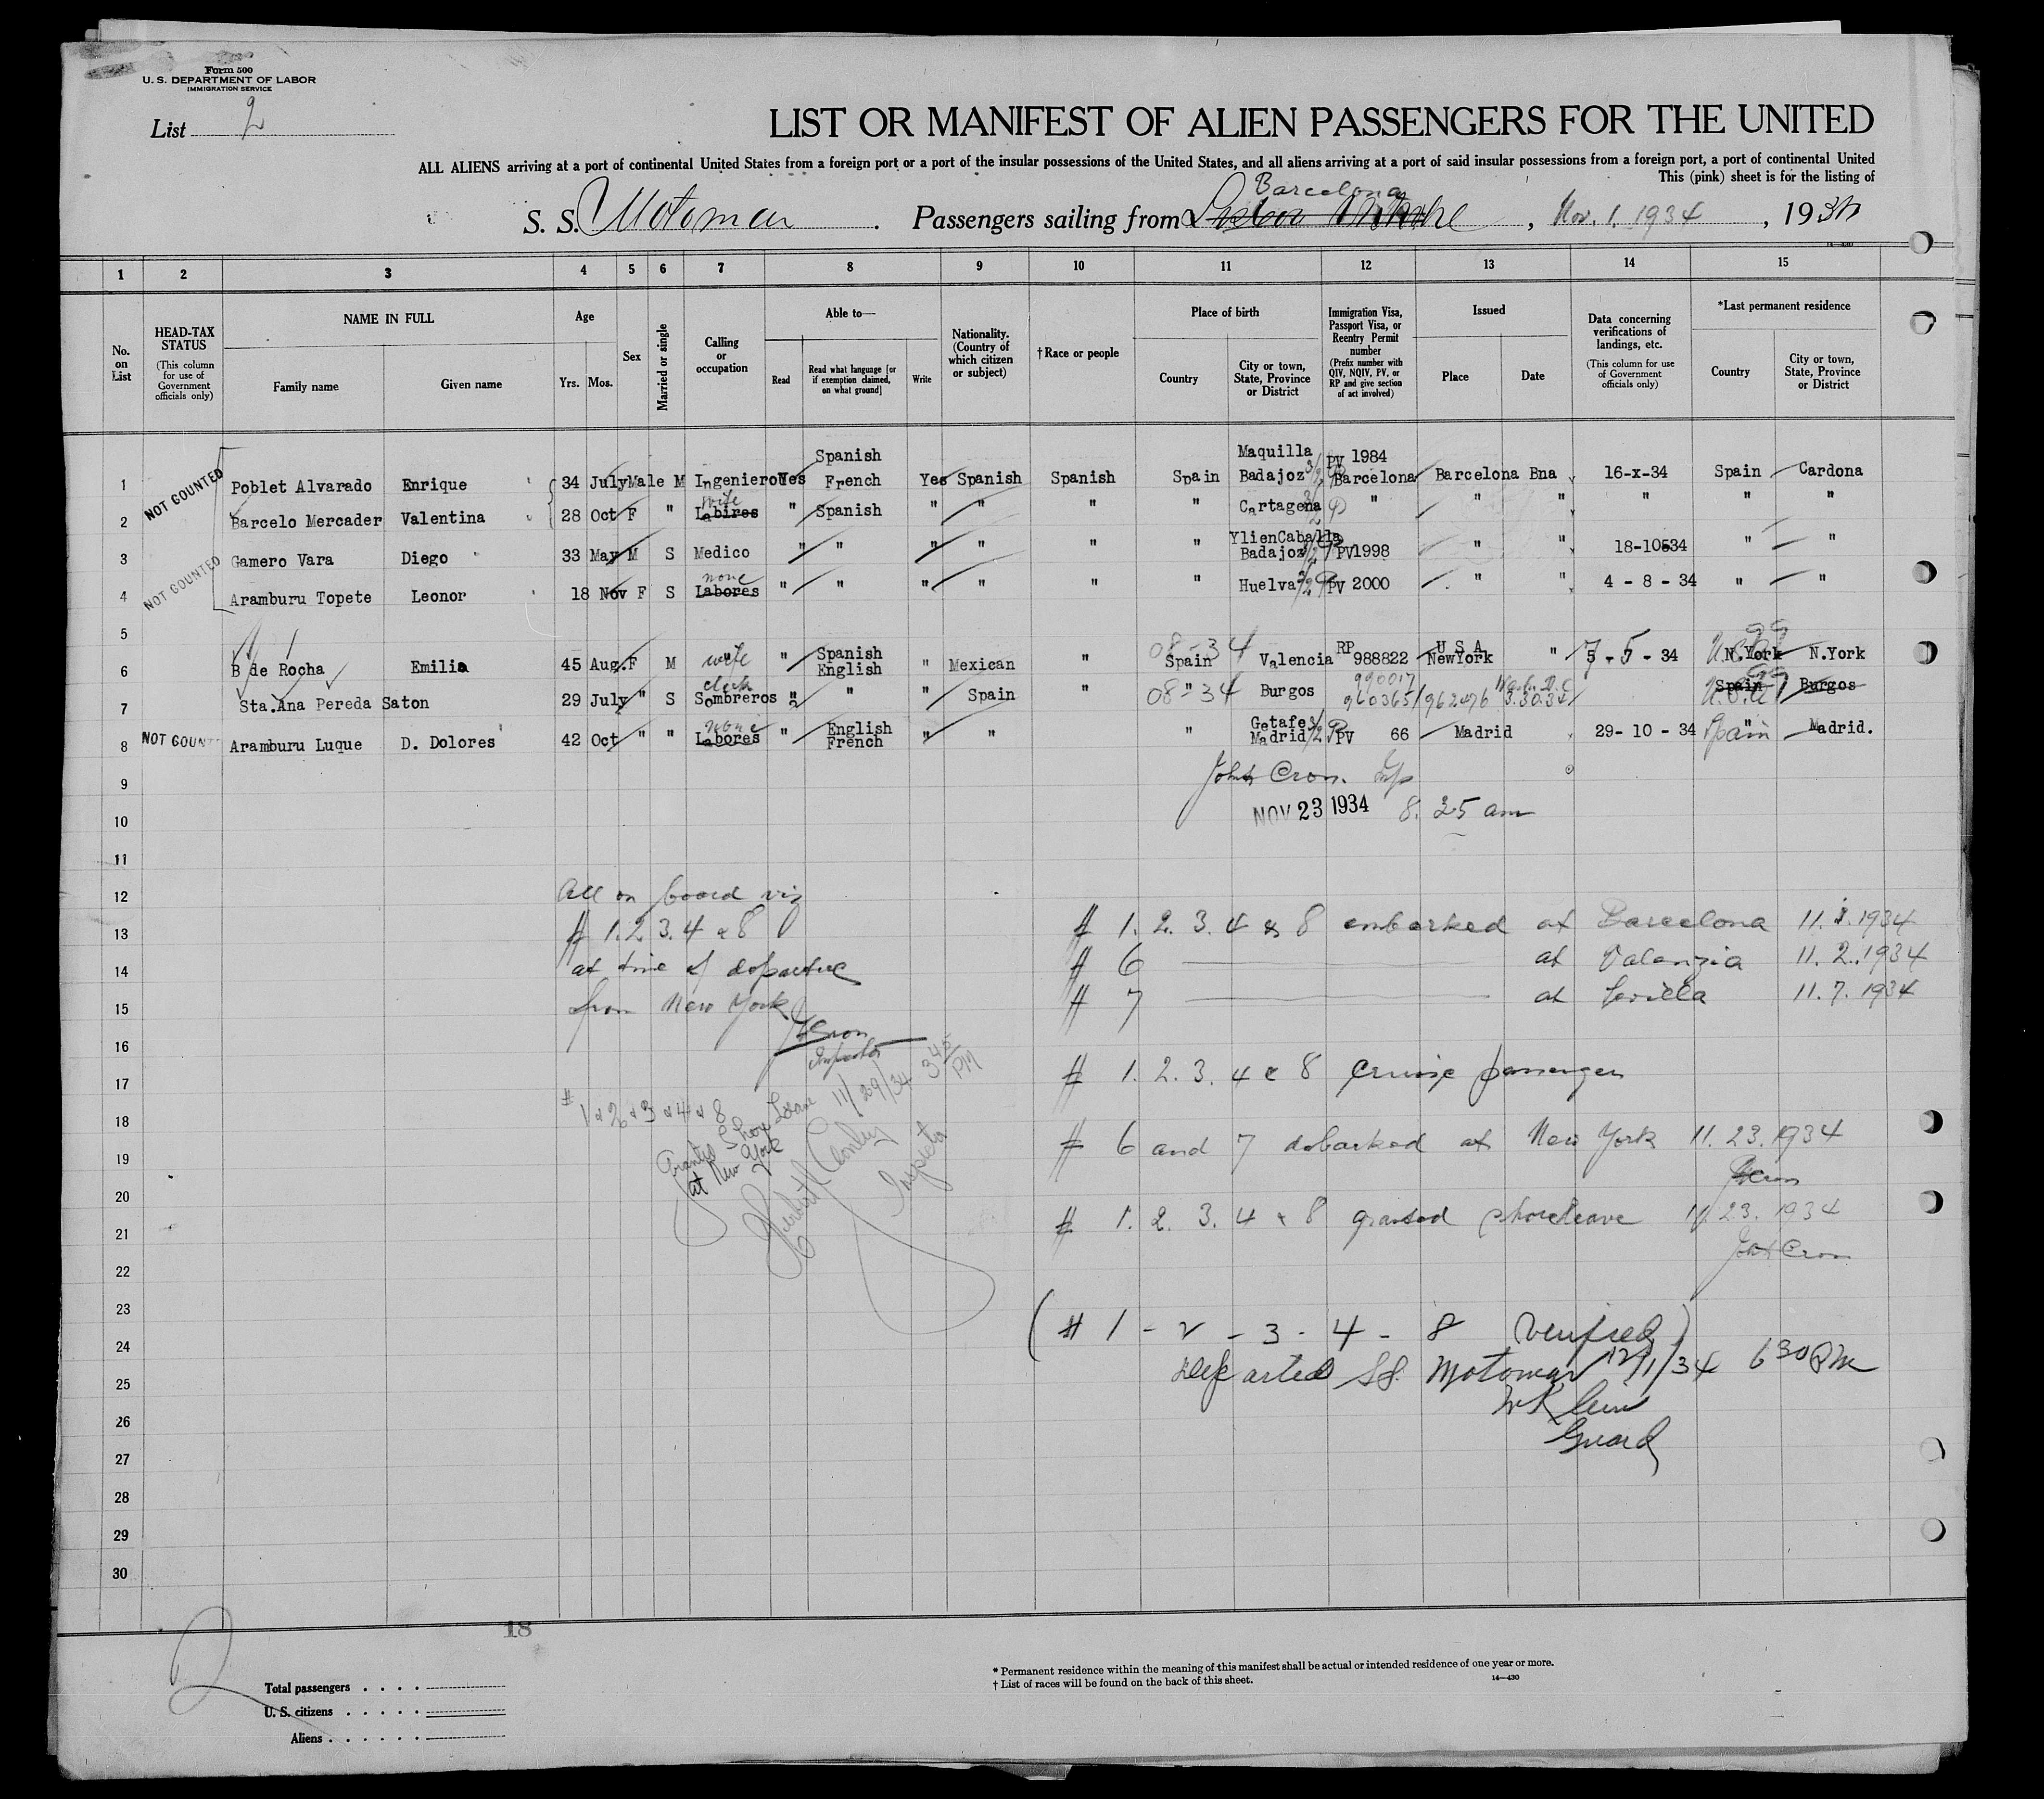 Form 500
U. S. DEPARTMENT OF LABOR
IMMIGRATION SERVICE
List 2
LIST OR MANIFEST OF ALIEN PASSENGERS FOR THE UNITED
ALL ALIENS arriving at a port of continental United States from a foreign port or a port of the insular possessions of the United States, and all aliens arriving at a port of said insular possessions from a foreign port, a port of continental United
This (pink) sheet is for the listing of
Barcelona
S. S. Motomar . Passengers sailing from , Nov. 1. 1934 , 1934
14—430
1 2 3 4 5 6 7 8 9 10 11 12 13 14 15
No. on List
HEAD-TAX STATUS
(This column for use of Government officials only)
NAME IN FULL
Family name
Given name
Age
Yrs. Mos.
Sex
Married or single
Calling or occupation
Able to—
Read
Read what language [or if exemption claimed, on what ground]
Write
Nationality. (Country of which citizen or subject)
†Race or people
Place of birth
Country
City or town, State, Province or District
Immigration Visa, Passport Visa, or Reentry Permit number
(Prefix number with QIV, NQIV, PV, or RP and give section of act involved)
Issued
Place
Date
Data concerning verifications of landings, etc.
(This column for use of Government officials only)
*Last permanent residence
Country
City or town, State, Province or District
Spanish Maquilla PV 1984
1 NOT COUNTED Poblet Alvarado Enrique 34 July Male M Ingeniero Yes French Yes Spanish Spanish Spain Badajoz 3/2 Barcelona Barcelona Bna 16-x-34 Spain Cardona
wife
2 Barcelo Mercader Valentina 28 Oct F " Labires " Spanish " " " " Cartagena 3/2 " " " " " "
YlienCaballa
3 Gamero Vara Diego 33 May M S Medico " " " " " " Badajoz 3/2 PV1998 " " 18-10534 " "
none
4 NOT COUNTED Aramburu Topete Leonor 18 Nov F S Labores " " " " " " Huelva 3/2 PV 2000 " " 4 - 8 - 34 " "
5
08-34 RP U S A
6 B de Rocha Emilia 45 Aug. F M wife " Spanish English " Mexican " Spain Valencia 988822 NewYork " 5 - 5 - 34 U.S.A. N.York N.York
clerk 990017 Wash. D.C.
7 Sta.Ana Pereda Saton 29 July " S Sombreros " " " Spain " 08-34 " Burgos 960365/962476 3.30.34 Spain U.S.A. Burgos
none
8 NOT COUNT Aramburu Luque D. Dolores 42 Oct " " Labores " English French " " " Getafe Madrid 3/2 PV 66 Madrid 29- 10 - 34 Spain " Madrid.
9 John Cron. Insp
10 NOV 23 1934 8. 25 am
11
12 All on board viz
13 # 1.2.3.4 & 8 # 1. 2. 3. 4 & 8 embarked at Barcelona 11.1.1934
14 at time of departure # 6 at Valenzia 11. 2. 1934
15 from New York # 7 at Sevilla 11. 7. 1934
16 JCron
Inspector
17 # 1. 2. 3. 4 & 8 cruise passenger
# 1 & 2 & 3 & 4 & 8
18 Granted Shore Leave 11/29/34 3 45 PM
at New York
# 6 and 7 debarked at New York 11. 23. 1934
19 Inspector
JCron
20
21 # 1. 2. 3. 4 & 8 granted shoreleave 11. 23. 1934
John Cron
22
23
24 (# 1 - 2 - 3 - 4 - 8 Verified)
25 Departed SS. Motomar 12/1/34 6 30 PM
26
Guard
27
28
29
30
18
2
Total passengers
U. S. citizens
Aliens
* Permanent residence within the meaning of this manifest shall be actual or intended residence of one year or more.
† List of races will be found on the back of this sheet.
14—430